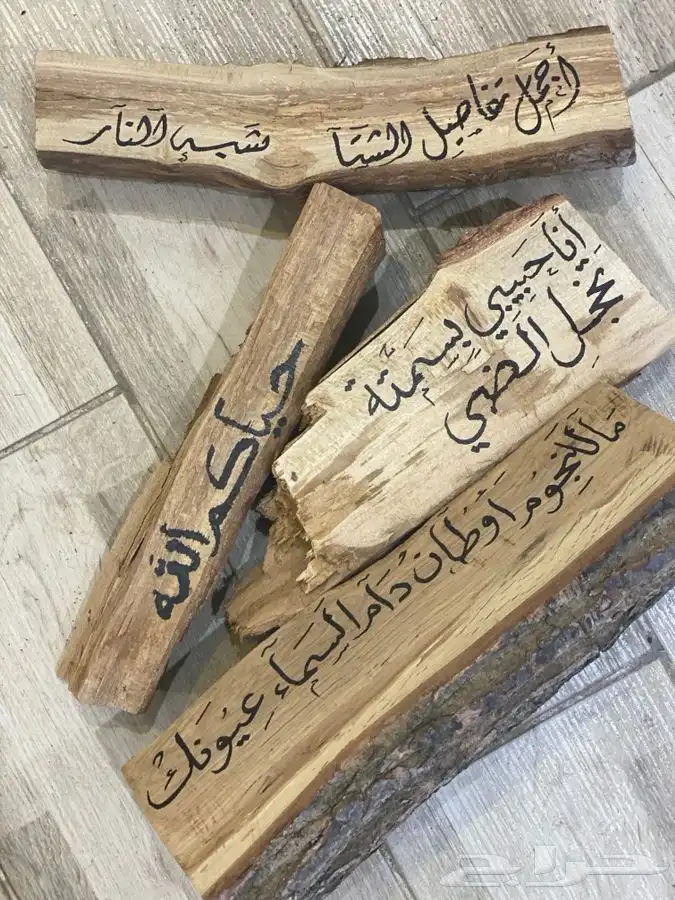 أجمل تفاصيل الشتآ تشبه آلنآر
حياكم الله
أنا حبيبي بسمته
تخجل الضي
ما للنجوم اوطان دام السماء عيونك
حراج